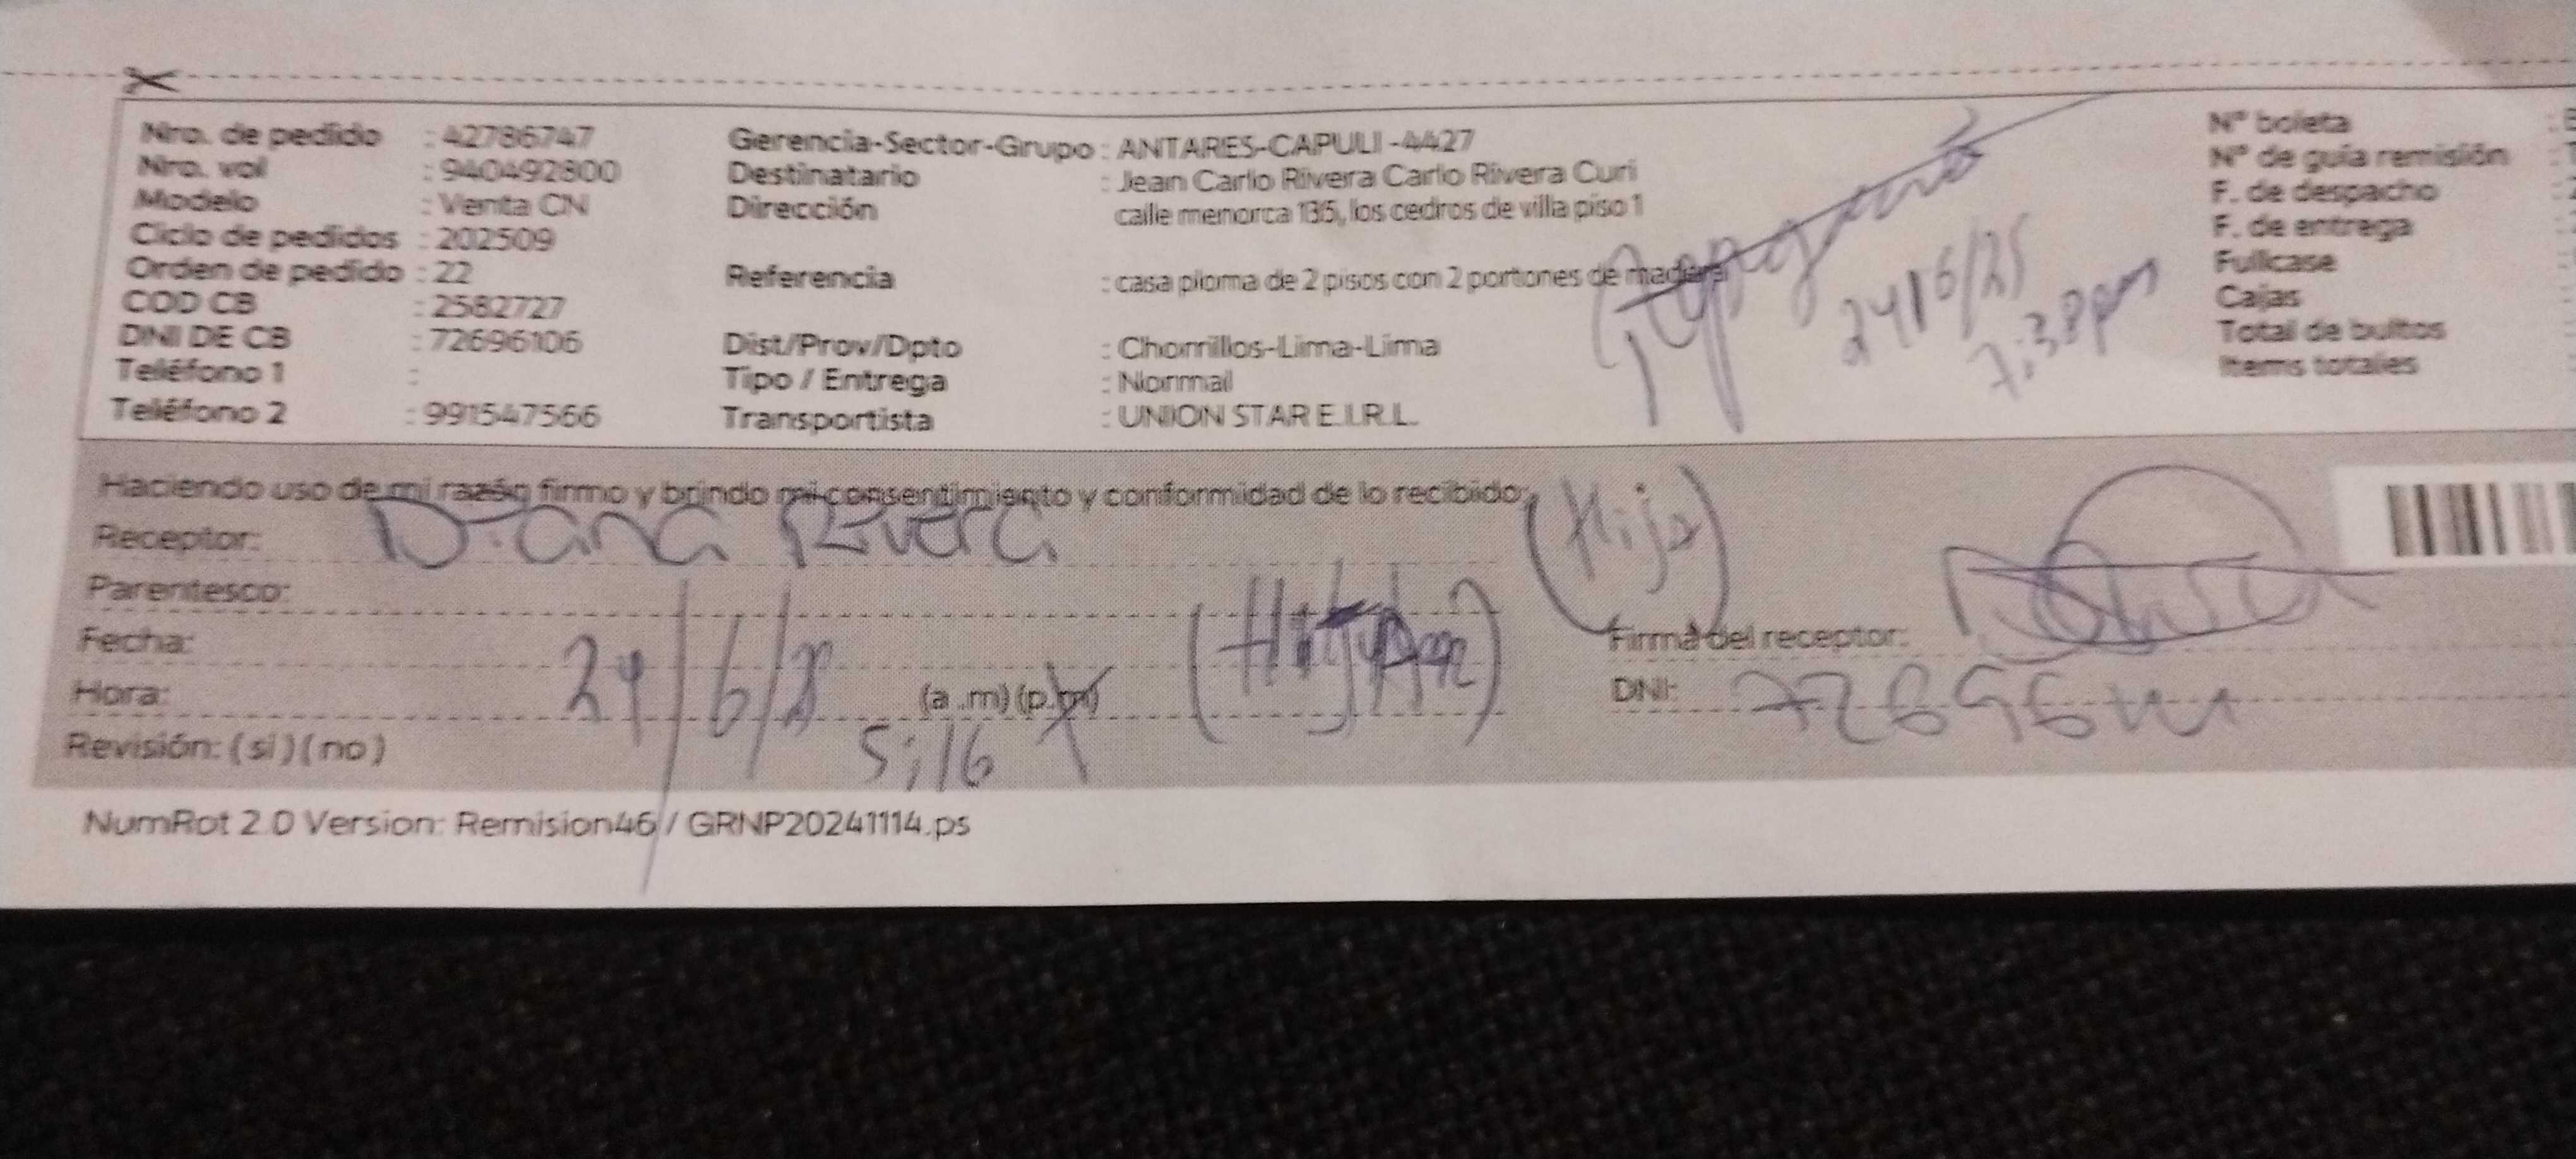 Nro. de pedido : 42786747
Nro. vol : 940492800
Modelo : Venta CN
Ciclo de pedidos : 202509
Orden de pedido : 22
COD CB : 2582727
DNI DE CB : 72696106
Teléfono 1 :
Teléfono 2 : 991547566
Gerencia-Sector-Grupo : ANTARES-CAPULI -4427
Destinatario : Jean Carlo Rivera Carlo Rivera Curi
Dirección calle menorca 135, los cedros de villa piso 1
Referencia : casa ploma de 2 pisos con 2 portones de madera
Dist/Prov/Dpto : Chorrillos-Lima-Lima
Tipo / Entrega : Normal
Transportista : UNION STAR E.I.R.L.
24/6/25
7:38pm
N° boleta :
N° de guía remisión :
F. de despacho :
F. de entrega :
Fullcase
Cajas
Total de bultos
Items totales
Haciendo uso de mi razón firmo y brindo mi consentimiento y conformidad de lo recibido:
(Hija)
Receptor: Diana Rivera
Parentesco:
Fecha: 24/6/
Hora: 5:16 (a .m) (p.m)
Revisión: ( si ) ( no )
Firma del receptor:
DNI:
NumRot 2.0 Version: Remision46 / GRNP20241114.ps